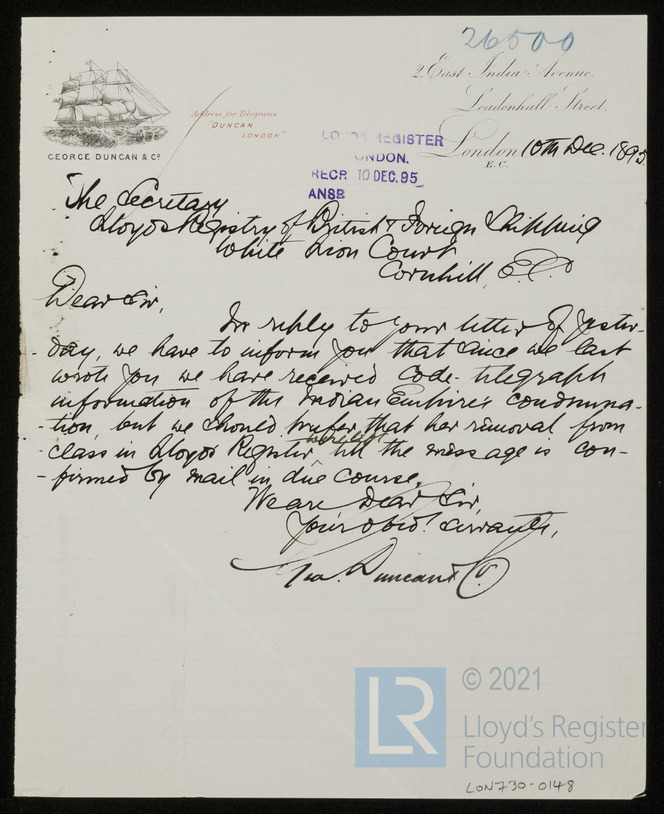 26500
2, East India Avenue,
Leadenhall Street,
London 10th Dec. 1895
E.C.
GEORGE DUNCAN & Co
Address for Telegrams
"DUNCAN
LONDON"
REGISTER
LONDON.
RECD 10 DEC. 95
ANSD
The Secretary
Lloyds Registry of British & Foreign Shipping
White Lion Court
Cornhill, E.C.
Dear Sir,
In reply to your letter of yester-
-day, we have to inform you that since we last
wrote you we have received code-telegraph
information of the Indian Empire's condemna-
-tion, but we should prefer that her removal from
class in Lloyds Register were left till the message is con-
-firmed by mail in due course.
We are, Dear Sir,
Your obedt. Servants,
Geo. Duncan & Co.
LR
© 2021
Lloyd's Register
Foundation
LON730-0148